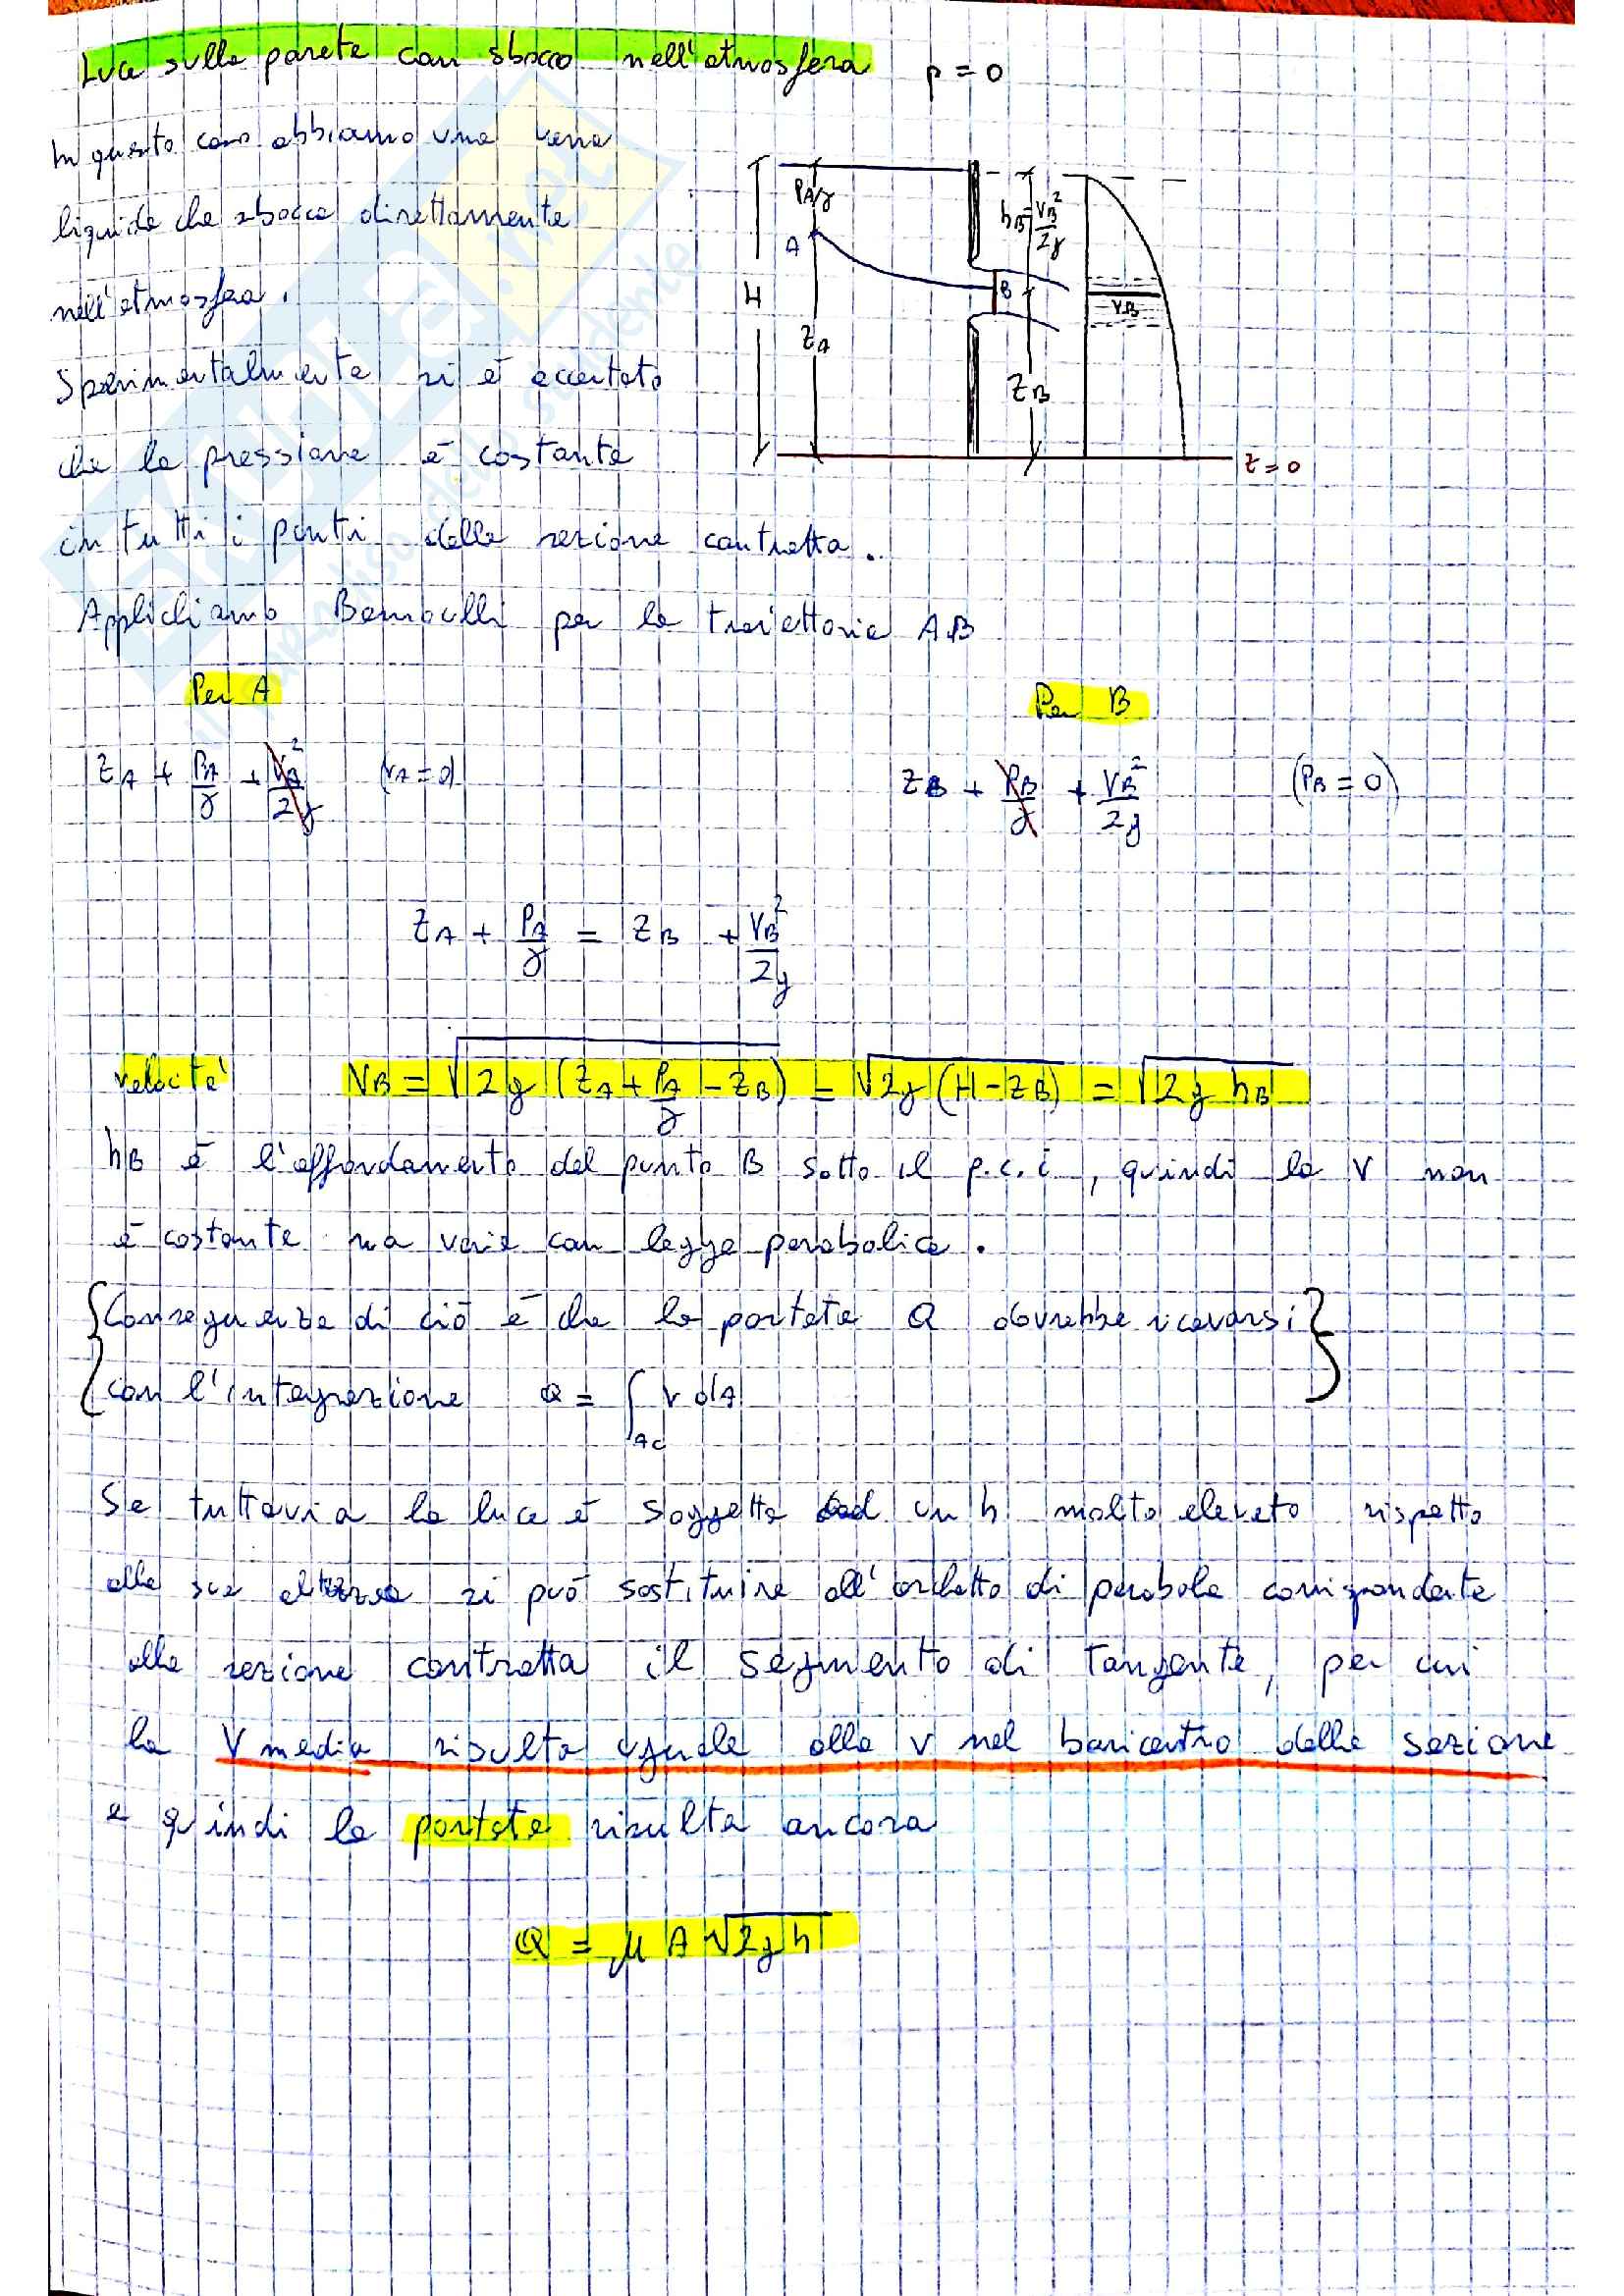 Luce sulla parete con sbocco nell'atmosfera p = 0
In questo caso abbiamo una vena
liquida che sbocca direttamente
nell'atmosfera.
Sperimentalmente si è accertato
che la pressione è costante
in tutti i punti della sezione contratta.
H
PA/γ
A
zA
hB = VB²/2g
B
zB
VB
z=0
Applichiamo Bernoulli per la traiettoria AB
Per A
Per B
zA + PA/γ + VA²/2g (VA=0)
zB + PB/γ + VB²/2g (PB=0)
zA + PA/γ = zB + VB²/2g
velocità VB = √2g (zA + PA/γ - zB) = √2g (H - zB) = √2g hB
hB è l'affondamento del punto B sotto il p.c.i, quindi la V non
è costante ma varia con legge parabolica.
{Conseguenza di ciò è che la portata Q dovrebbe ricavarsi}
con l'integrazione Q = ∫Ac v dA
Se tuttavia la luce è soggetta ad un h molto elevato rispetto
alla sua altezza si può sostituire all'archetto di parabola corrispondente
alla sezione contratta il segmento di tangente, per cui
la V media risulta uguale alla v nel baricentro della sezione
e quindi la portata risulta ancora
Q = μ A √2gh